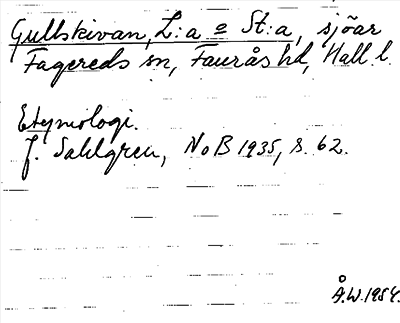 Gullskivan, L:a o St:a, sjöar
Fagereds sn, Faurås hd, Hall. l.
Etymologi.
J. Sahlgren, NoB 1935, s. 62.
Å.W. 1954.